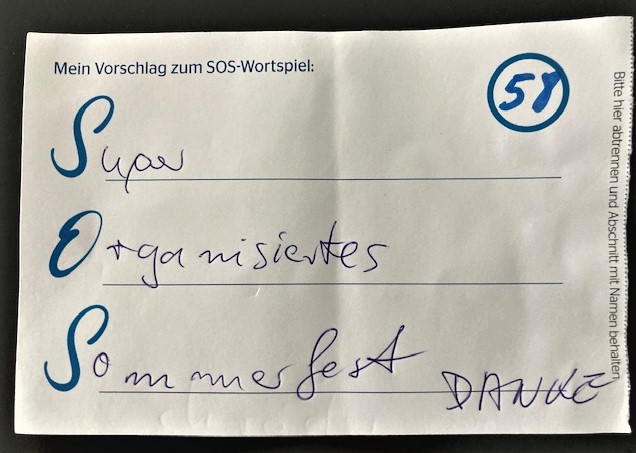 Mein Vorschlag zum SOS-Wortspiel:
58
Super
Organisiertes
Sommerfest
DANKE
Bitte hier abtrennen und Abschnitt mit Namen behalten